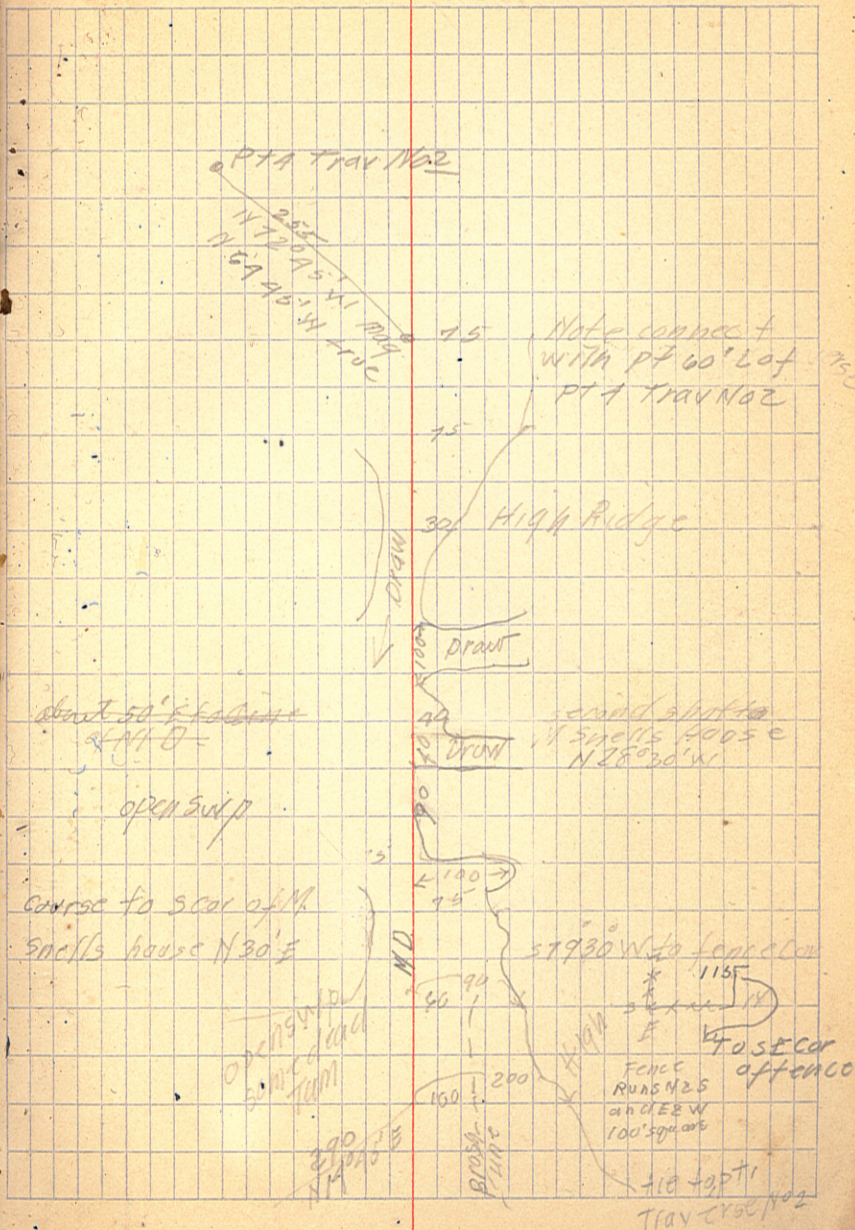 Pt 4 Trav No2
255
N 72° 45' W mag
N 64 45' W true
75
Note connect
with pt 60' L of
Pt 4 Trav No2
15
30
High Ridge
Draw
100
Draw
about 50' E
40
second shot to
snells hoose
N 28° 30' W
Draw
40
60
open swp
5
100
75
course to S cor of M.
snells house N 30° E
MD
S 79 30 W to fence cor
115
N
S
E
To SE Cor
of fence
40
90
open swp
some dead
Tam
High
Fence
Runs N & S
and E & W
100' square
100
200
Brush
290
tie to pt 1
Traverse No2